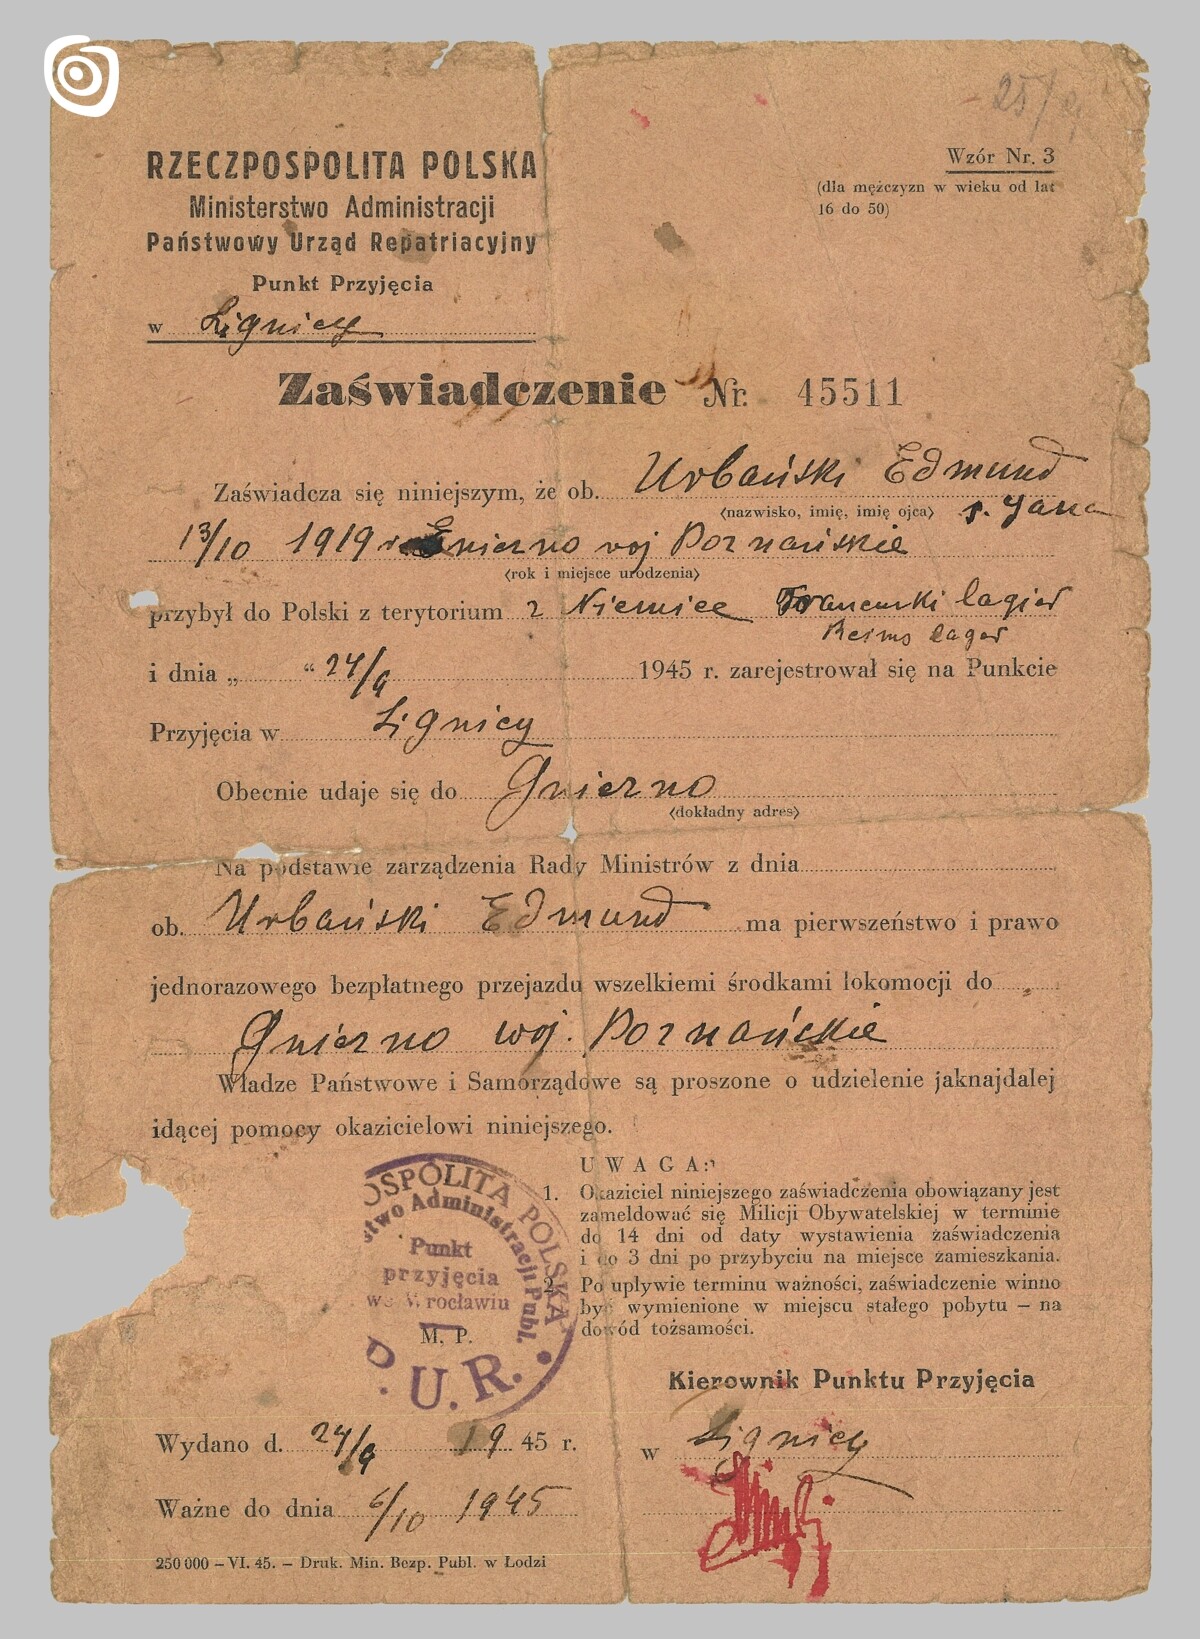 25/
RZECZPOSPOLITA POLSKA
Ministerstwo Administracji
Państwowy Urząd Repatriacyjny
Punkt Przyjęcia
w Lignicy
Wzór Nr. 3
(dla mężczyzn w wieku od lat
16 do 50)
Zaświadczenie Nr. 45511
Zaświadcza się niniejszym, że ob. Urbański Edmund
(nazwisko, imię, imię ojca) s. Jana
13/10 1919 r. Gniezno woj Poznańskie
(rok i miejsce urodzenia)
przybył do Polski z terytorium z Niemiec Francuski lagier
lager
i dnia „ “ 24/9 1945 r. zarejestrował się na Punkcie
Przyjęcia w Lignicy
Obecnie udaje się do Gniezno
(dokładny adres)
Na podstawie zarządzenia Rady Ministrów z dnia
ob. Urbański Edmund ma pierwszeństwo i prawo
jednorazowego bezpłatnego przejazdu wszelkiemi środkami lokomocji do
Gniezno woj. Poznańskie
Władze Państwowe i Samorządowe są proszone o udzielenie jaknajdalej
idącej pomocy okazicielowi niniejszego.
UWAGA:
1. Okaziciel niniejszego zaświadczenia obowiązany jest
zameldować się Milicji Obywatelskiej w terminie
do 14 dni od daty wystawienia zaświadczenia
i do 3 dni po przybyciu na miejsce zamieszkania.
2. Po upływie terminu ważności, zaświadczenie winno
być wymienione w miejscu stałego pobytu – na
dowód tożsamości.
OSPOLITA POLSKA
stwo Administracji Publ.
Punkt
przyjęcia
we Wrocławiu
M. P.
P. U. R.
Kierownik Punktu Przyjęcia
w Lignicy
Wydano d. 24/9 19 45 r.
Ważne do dnia 6/10 1945
250 000 – VI. 45. – Druk. Min. Bezp. Publ. w Łodzi